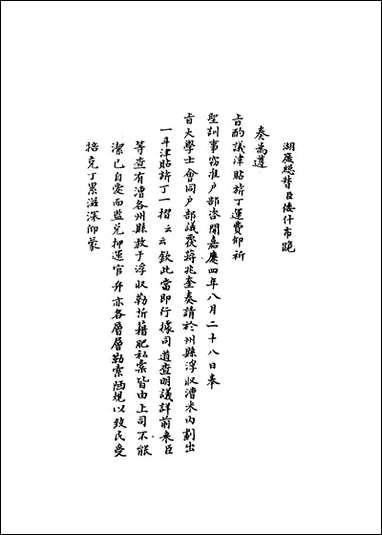 湖廣總督臣倭什布跪
奏為遵
旨酌議津貼旂丁運費仰祈
聖訓事竊准户部咨開嘉慶四年八月二十八日奉
旨大學士會同户部議覆蔣兆奎奏請於州縣浮收漕米內劃出
一斗津貼旂丁一摺云云欽此當即行據司道查明議詳前來臣
等查有漕各州縣敢于浮收勒折藉肥私橐皆由上司不能
潔己自愛而監兑押運官弁亦各層層勒索陋規以致民受
掊克丁累滋深仰蒙